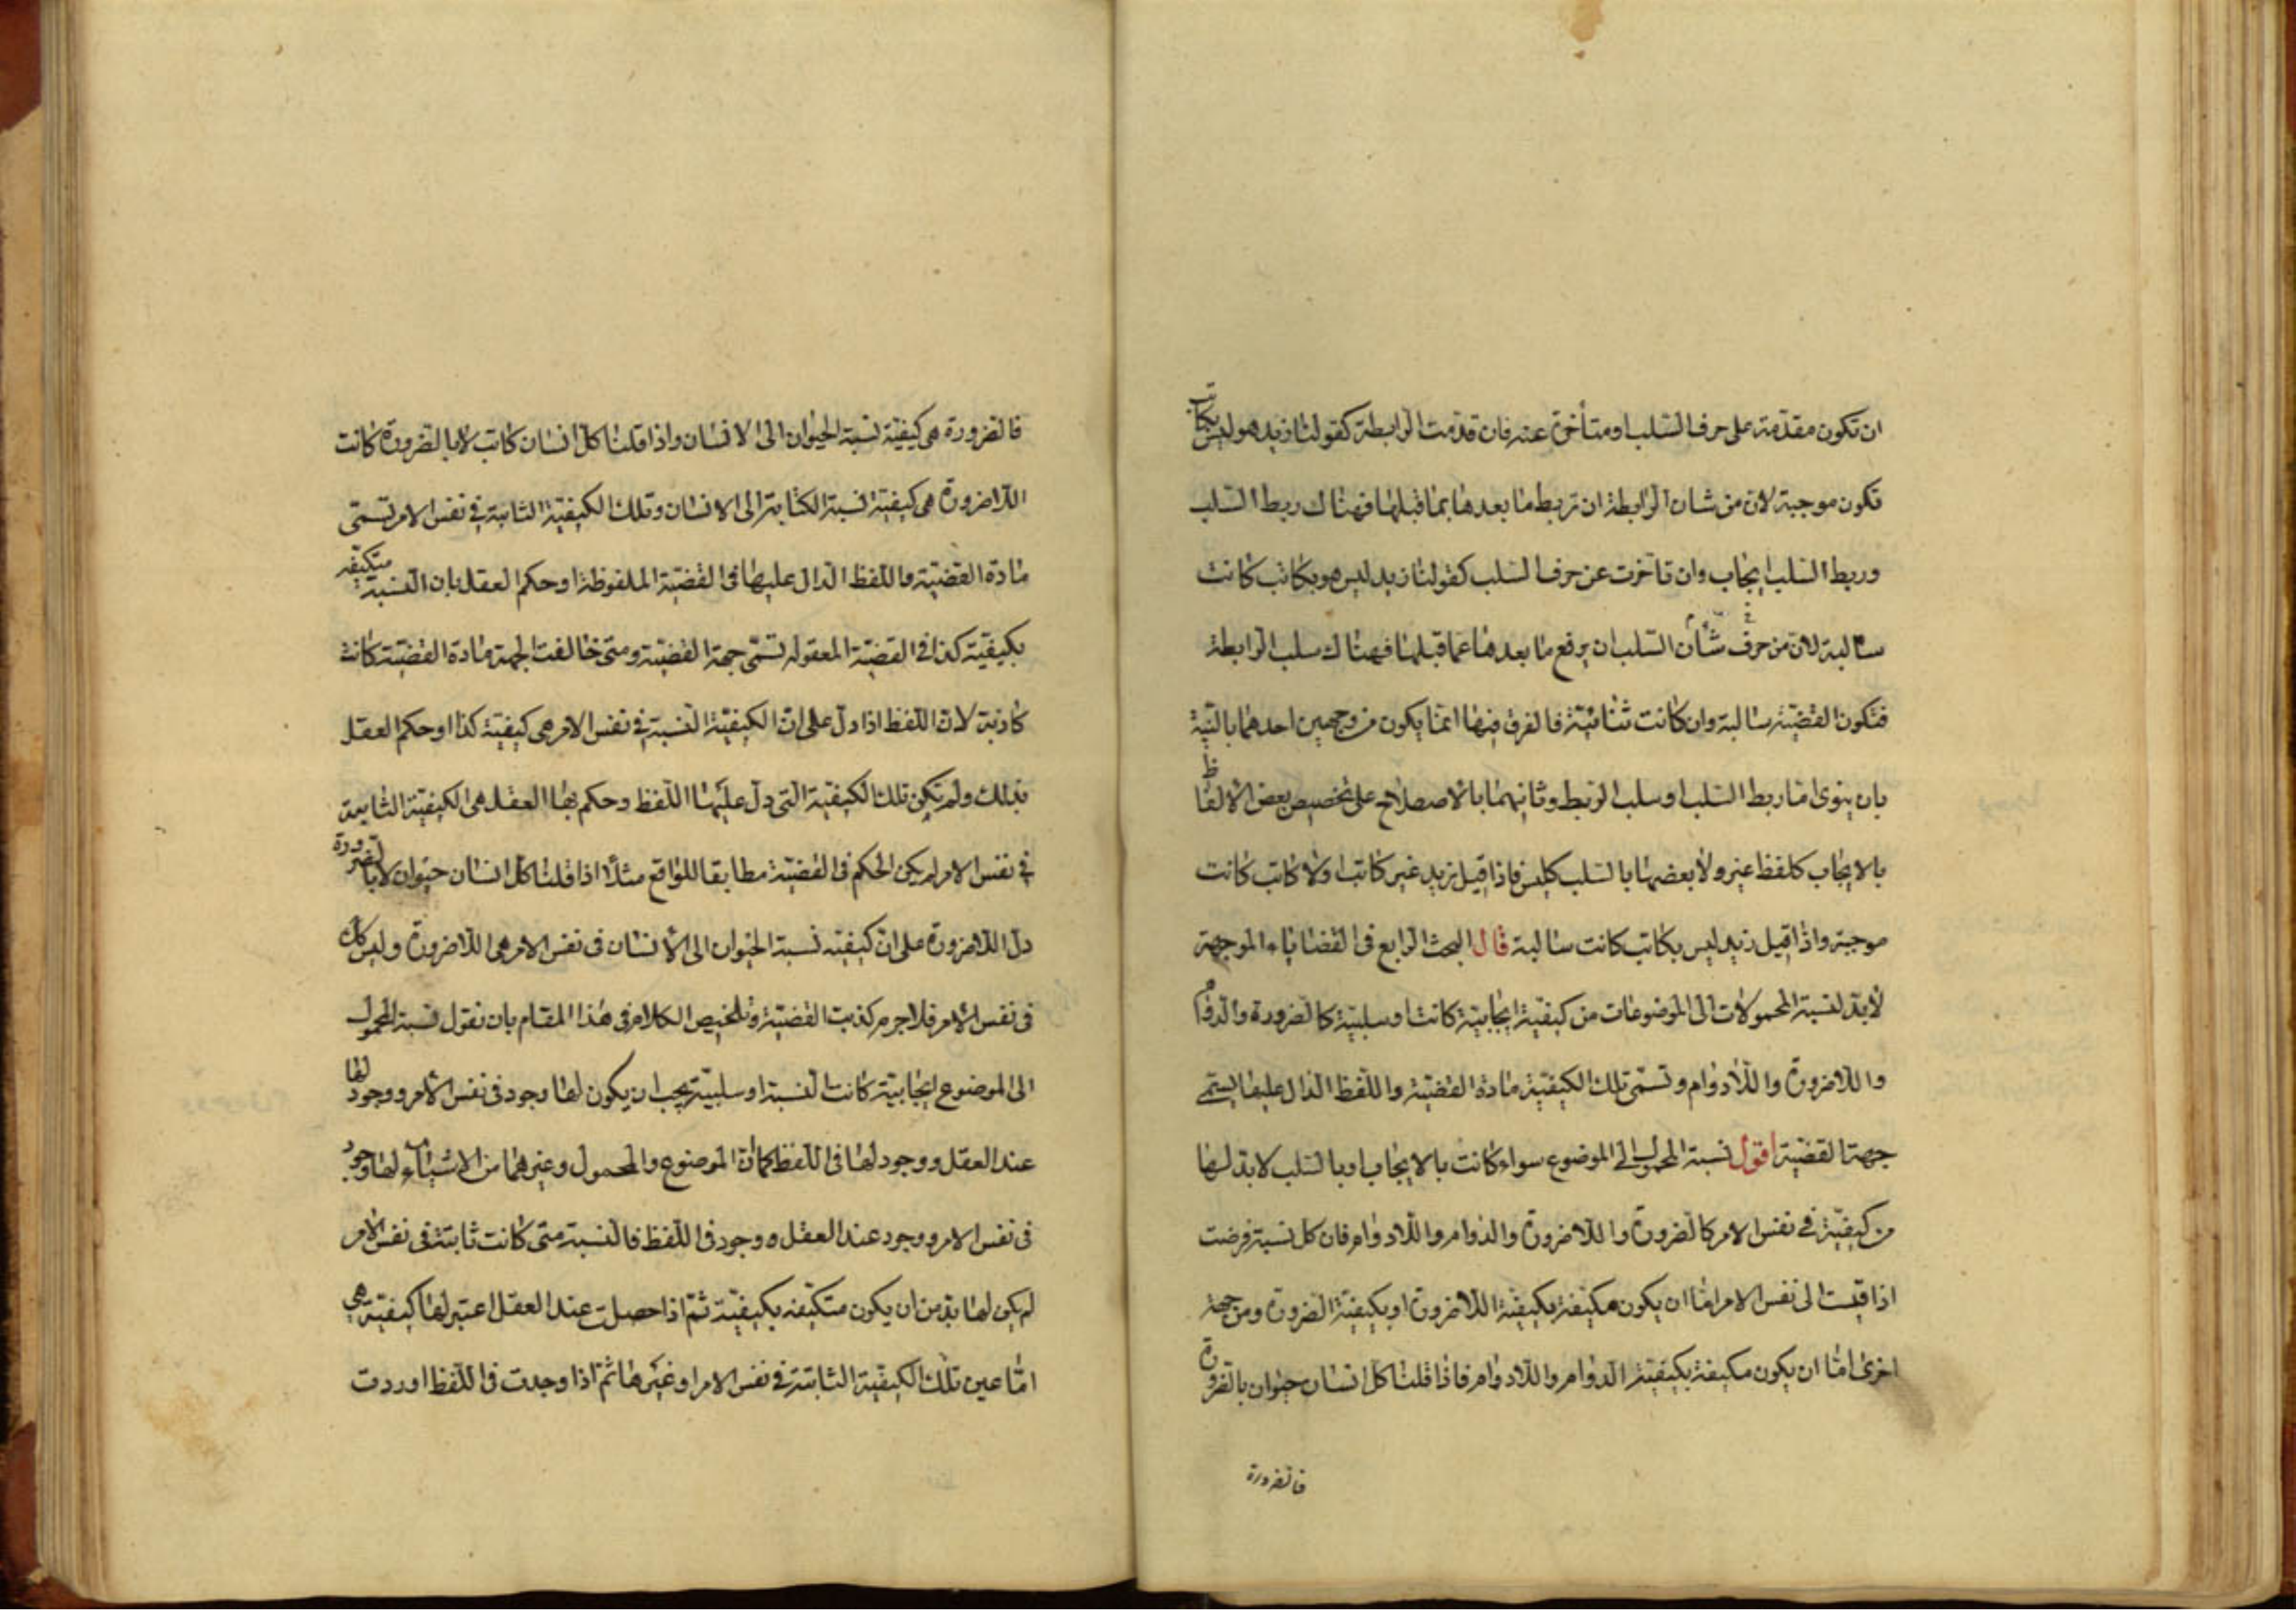 ان تكون مقدمة على حرف السلب او متأخرة عنه فان قدمت الرابطة كقولنا زيد هو ليس بكاتب
فتكون موجبة لان من شان الرابطة ان تربط ما بعدها بما قبلها فهناك ربط السلب
وربط السلب ايجاب وان تاخرت عن حرف السلب كقولنا زيد ليس هو بكاتب كانت
سالبة لان من حرف شأن السلب ان يرفع ما بعدها عما قبلها فهناك سلب الرابطة
فتكون القضيّة سالبة وان كانت ثنائيّة فالفرق فيها انما يكون من وجهين احدهما بالنيّة
بان ينوى اما ربط السلب او سلب الربط وثانيهما بالاصطلاح على تخصيص بعض الالفاظ
بالايجاب كلفظ غير ولا بعضها بالسلب كليس فاذا قيل زيد غير كاتب او لا كاتب كانت
موجبة واذا قيل زيد ليس بكاتب كانت سالبة قال البحث الرابع فى القضاياء الموجهة
لا بدّ لنسبة المحمولات الى الموضوعات من كيفيّة ايجابيّة كانت او سلبيّة كالضرورة والدوام
واللاضرورة واللادوام وتسمّى تلك الكيفيّة مادة القضيّة واللفظ الدال عليها يسمى
جهة القضيّة اقول نسبة المحمول الى الموضوع سواء كانت بالايجاب او بالسلب لا بد لها
من كيفيّة فى نفس الامر كالضرورة واللاضرورة والدوام واللادوام فان كل نسبة فرضت
اذا قيست الى نفس الامر اما ان يكون مكيفة بكيفيّة اللاضرورة او بكيفيّة الضرورة ومن جهة
اخرى اما ان يكون مكيفة بكيفيّة الدوام واللادوام فاذا قلنا كل انسان حيوان بالضرورة
فالضرورة
فالضرورة هى كيفيّة نسبة الحيوان الى الانسان واذا قلنا كل انسان كاتب لا بالضرورة كانت
اللاضرورة هى كيفيّة نسبة الكتابة الى الانسان وتلك الكيفيّة الثابتة فى نفس الامر تسمّى
مادة القضيّة واللفظ الدال عليها فى القضيّة الملفوظة او حكم العقل بان النسبة متكيفه
بكيفيّة كذا فى القضيّة المعقوله تسمّى جهة القضيّة ومتى خالفت الجهة مادة القضيّة كانت
كاذبة لان اللفظ اذا دل على ان الكيفيّة النسبة فى نفس الامر هى كيفيّة كذا او حكم العقل
بذلك ولم تكن تلك الكيفيّة التى دل عليها اللفظ وحكم بها العقل هى الكيفيّة الثابتة
فى نفس الامر لم يكن الحكم فى القضيّة مطابقا للواقع مثلاً اذا قلنا كل انسان حيوان لا بالضرورة
دل اللاضرورة على ان كيفيّة نسبة الحيوان الى الانسان فى نفس الامر هى اللاضرورة وليس كك
فى نفس الامر فلا جرم كذبت القضيّة وتلخيص الكلام فى هذا المقام بان نقول نسبة المحمول
الى الموضوع ايجابيّة كانت النسبة او سلبيّة يجب ان يكون لها وجود فى نفس الامر ووجود لها
عند العقل ووجود لها فى اللفظ كما ان الموضوع والمحمول وغيرهما من الاشياء لها وجود
فى نفس الامر ووجود عند العقل ووجود فى اللفظ فالنسبة متى كانت ثابتة فى نفس الامر
لم يكن لها بد من ان يكون متكيفه بكيفيّة ثم اذا حصلت عند العقل اعتبر لها كيفيّة هى
امّا عين تلك الكيفيّة الثابتة فى نفس الامر او غيرها ثم اذا وجدت فى اللفظ اوردت